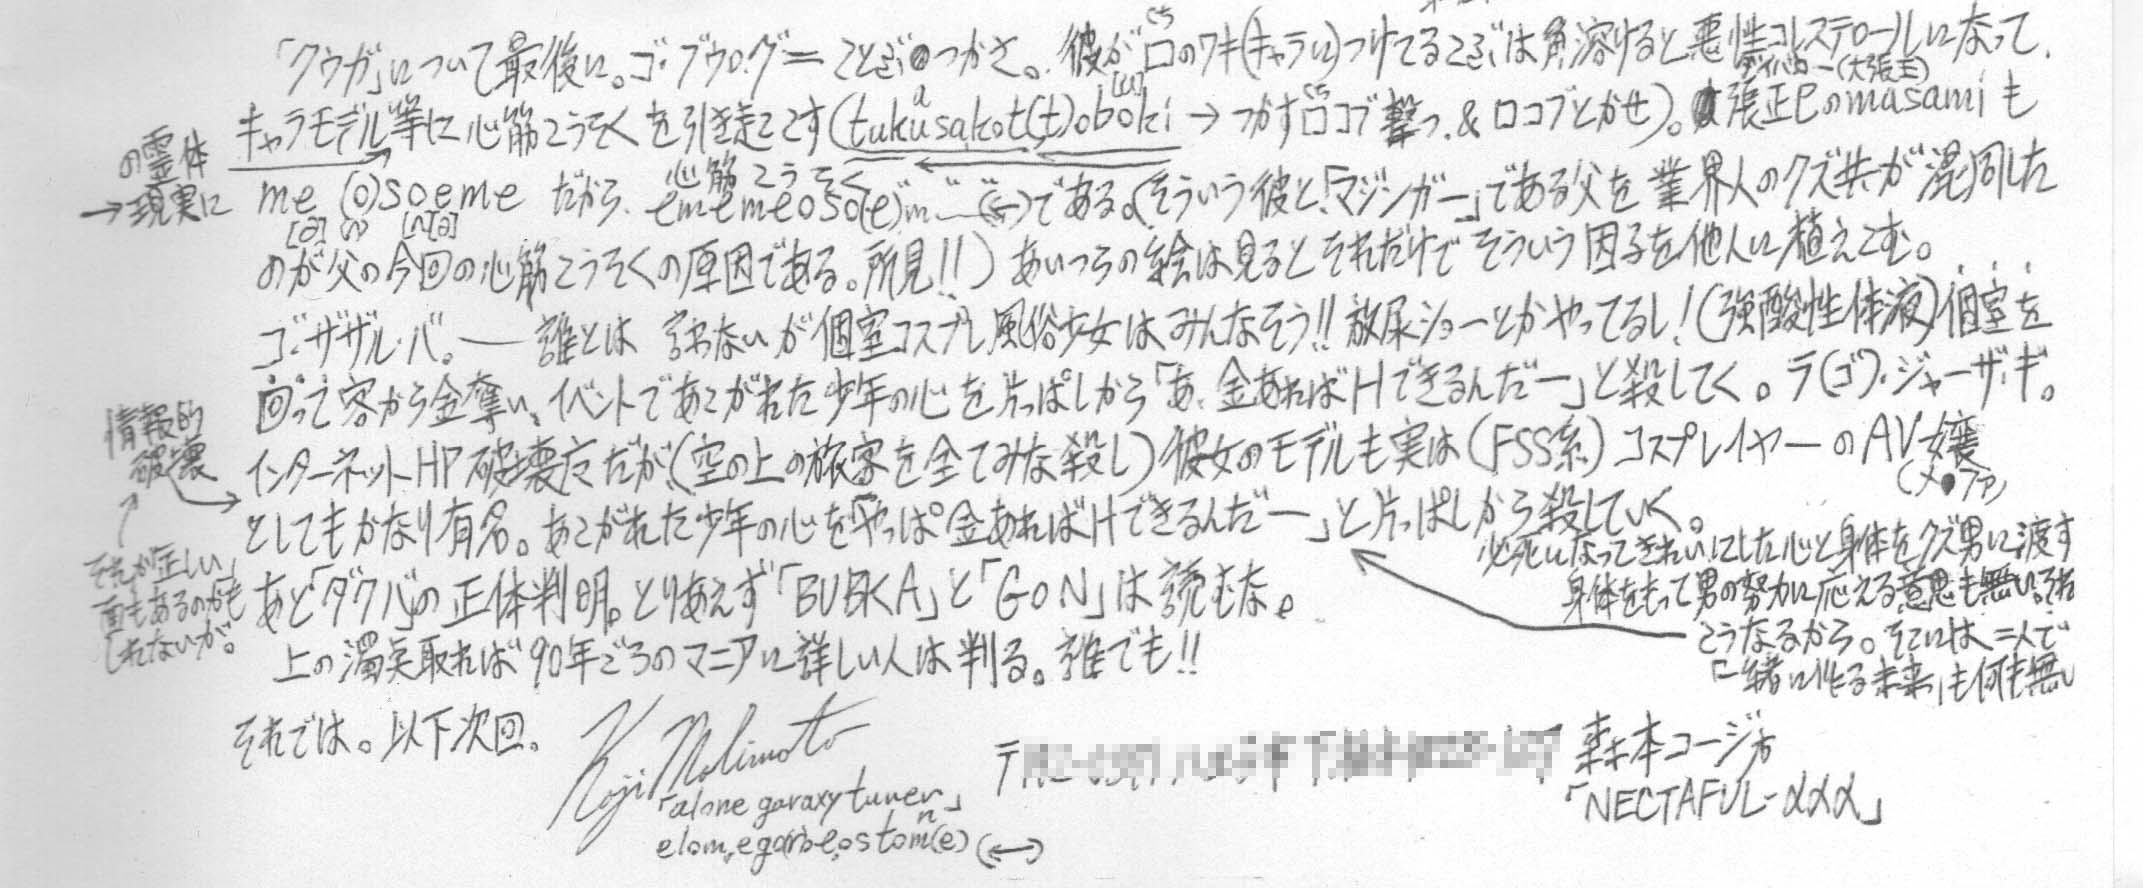 「クウガ」について最後に。ゴ・ブウロ・グ＝ ことざいつかさ。彼が口のワキ(キャラに)つけてるこぶは角溶けると悪性コレステロールになって、
キャラモデル等に心筋こうそくを引き起こす(tukusakot(t)oboki→つかす口コブ撃つ&口コブとかせ)。大張正己のmasamiも
ダイバロー(大張主)
の霊体
→現実に
me (o)soeme だから、ememeoso(e)m (←)である。(そういう彼と「マジンガー」である父を業界人のクズ共が混同した
心筋こうそく
のが父の今回の心筋こうそくの原因である。所見!!) あいつらの絵は見るとそれだけでそういう因子を他人に植えこむ。
ゴ・ザザル・バ。―誰とは言わないが個室コスプレ風俗少女はみんなそう!!放尿ショーとかやってるし!(強酸性体液)個室を
回って客から金奪い、イベントであこがれた少年の心を片っぱしから「あ、金あればHできるんだー」と殺してく。ラ(ゴ)・ジャーザ・ギ。
情報的
破壊
インターネットHP破壊だが、(空の上の旅客を全てみな殺し)彼女のモデルも実は(FSS系)コスプレイヤーのAV嬢
(メ●ファ)
としてもかなり有名。あこがれた少年の心を「やっぱ金あればHできるんだー」と片っぱしから殺していく。
それが正しい
面もあるのかも
しれないが。
必死になってきれいにした心と身体をクズ男に渡す
身体をもって男の努力に応える意思も無い。それ
こうなるから。そこには二人で
「一緒に作る未来」も何も無い
あと「ダグバ」の正体判明。とりあえず「BUBKA」と「GON」は読むな。
上の濁点取れば90年ごろのマニアに詳しい人は判る。誰でも!!
それでは。以下次回。
Koji Molimoto
「alone garaxy tuner」
elom,ega(r)b-e,os tom(e) (↔)
〒
森本コージ方
「NECTAFUL-ααα」